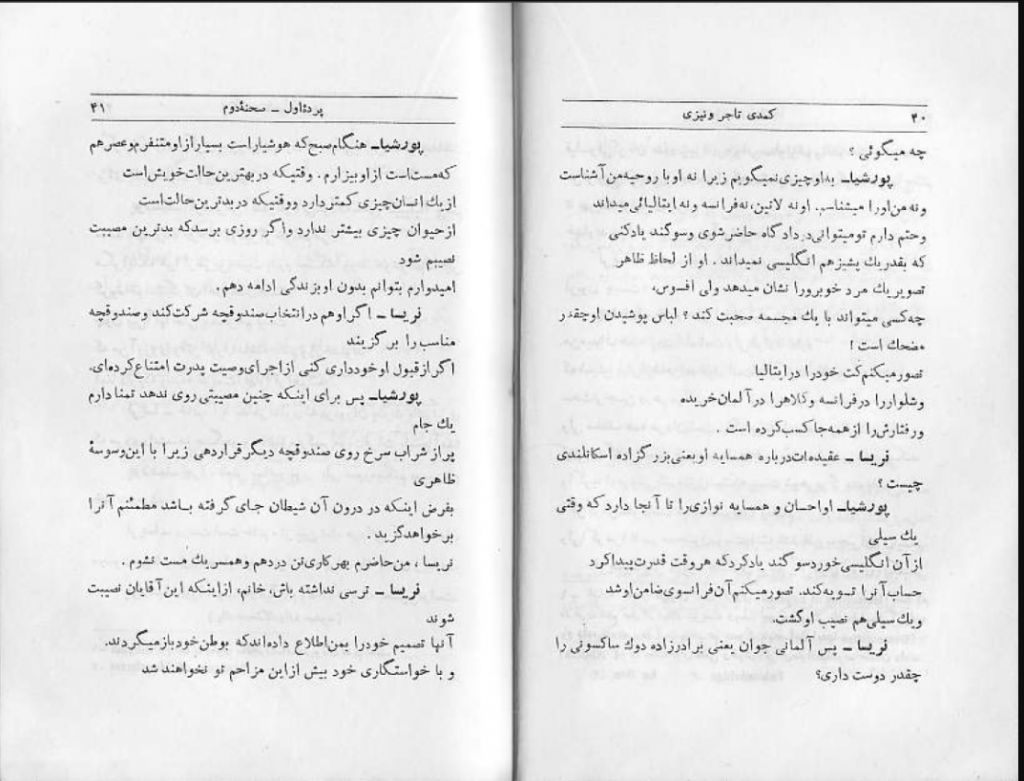 ۴۰
کمدی تاجر ونیزی
چه میگوئی ؟
پورشیا- به او چیزی نمیگویم زیرا نه او با روحیه من آشناست
و نه من او را میشناسم. او نه لاتین، نه فرانسه و نه ایتالیائی میداند
و حتم دارم تو میتوانی در دادگاه حاضر شوی و سوگند یاد کنی
که بقدر یك پشیز هم انگلیسی نمیداند . او از لحاظ ظاهر
تصویر یك مرد خوبرو را نشان میدهد ولی افسوس،
چه کسی میتواند با یك مجسمه صحبت کند ؟ لباس پوشیدن او چقدر
مضحك است !
تصور میکنم کت خود را در ایتالیا
و شلوار را در فرانسه و کلاه را در آلمان خریده
و رفتارش را از همه جا کسب کرده است .
نریسا - عقیده ات درباره همسایه او یعنی بزرگزاده اسکاتلندی
چیست ؟
پورشیا- او احسان و همسایه نوازی را تا آنجا دارد که وقتی
یك سیلی
از آن انگلیسی خورد سوگند یاد کرد که هر وقت قدرت پیدا کرد
حساب آنرا تسویه کند. تصور میکنم آن فرانسوی ضامن او شد
و یك سیلی هم نصیب او گشت.
نریسا - پس آلمانی جوان یعنی برادرزاده دوك ساکسونی را
چقدر دوست داری؟
پردهٔ اول - صحنهٔ دوم
۴۱
پورشیا- هنگام صبح که هوشیار است بسیار از او متنفرم و عصر هم
که مست است از او بیزارم . وقتیکه در بهترین حالت خویش است
از یك انسان چیزی کمتر دارد و وقتیکه در بدترین حالت است
از حیوان چیزی بیشتر ندارد و اگر روزی برسد که بدترین مصیبت
نصیبم شود
امیدوارم بتوانم بدون او بزندگی ادامه دهم .
نریسا - اگر او هم در انتخاب صندوقچه شرکت کند و صندوقچه
مناسب را بر گزیند
اگر از قبول او خودداری کنی از اجرای وصیت پدرت امتناع کرده ای.
پورشیا- پس برای اینکه چنین مصیبتی روی ندهد تمنا دارم
یك جام
پر از شراب سرخ روی صندوقچه دیگر قرار دهی زیرا با این وسوسهٔ
ظاهری
بفرض اینکه در درون آن شیطان جای گرفته باشد مطمئنم آنرا
بر خواهد گزید .
نریسا ، من حاضرم بهر کاری تن در دهم و همسر یك مست نشوم .
نریسا - ترسی نداشته باش، خانم، از اینکه این آقایان نصیبت
شوند
آنها تصمیم خود را بمن اطلاع داده اند که بوطن خود باز میگردند.
و با خواستگاری خود بیش از این مزاحم تو نخواهند شد